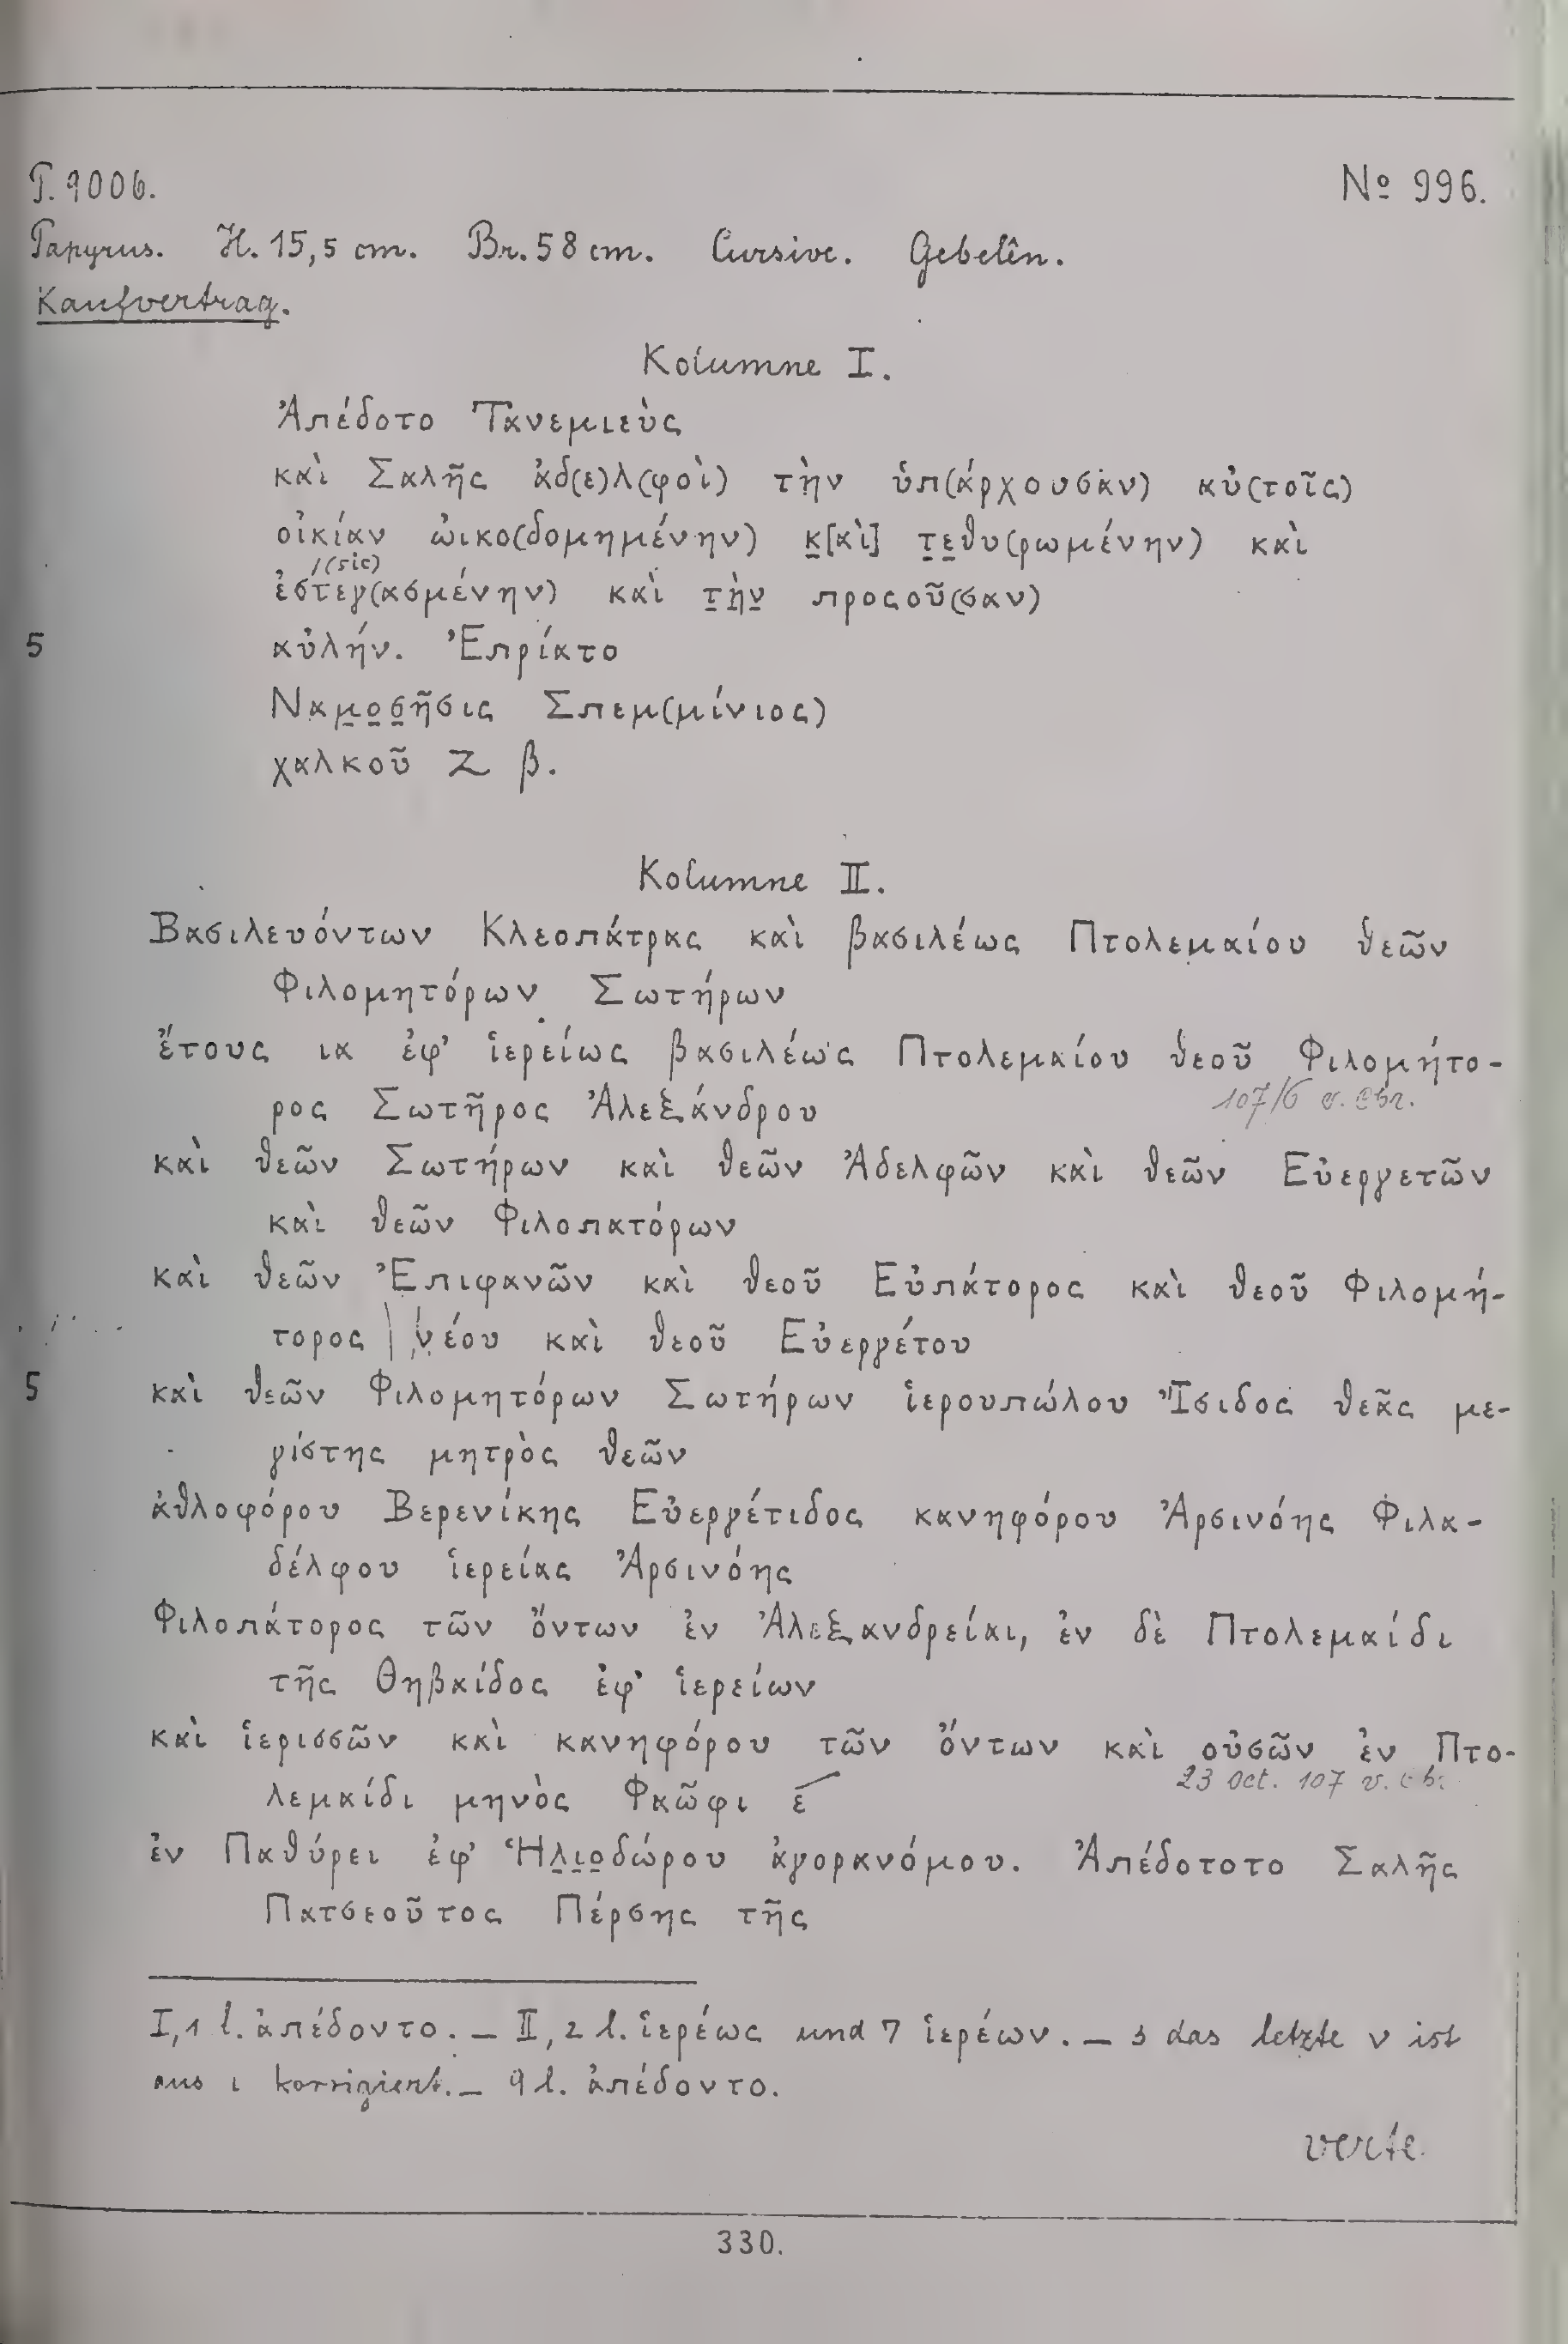 P. 9006. No 996.
Papyrus. H. 15,5 cm. Br. 58 cm. Cursive. Gebelên.
Kaufvertrag.
Kolumne I.
Ἀπέδοτο Τανεμιεὺς
καὶ Σαλῆς ἀδ(ε)λ(φοὶ) τὴν ὑπ(άρχουσαν) αὐ(τοῖς)
οἰκίαν ὠικο(δομημένην) κ[αὶ] τεθυ(ρωμένην) καὶ
/(sic)
ἐστεγ(ασμένην) καὶ τὴν προςοῦ(σαν)
5 αὐλήν. Ἐπρίατο
Ναμοσῆσις Σπεμ(μίνιος)
χαλκοῦ Ζ β.
Kolumne II.
Βασιλευόντων Κλεοπάτρας καὶ βασιλέως Πτολεμαίου θεῶν
Φιλομητόρων Σωτήρων
ἔτους ια ἐφ' ἱερείως βασιλέως Πτολεμαίου θεοῦ Φιλομήτο-
ρος Σωτῆρος Ἀλεξάνδρου 107/6 v. Chr.
καὶ θεῶν Σωτήρων καὶ θεῶν Ἀδελφῶν καὶ θεῶν Εὐεργετῶν
καὶ θεῶν Φιλοπατόρων
καὶ θεῶν Ἐπιφανῶν καὶ θεοῦ Εὐπάτορος καὶ θεοῦ Φιλομή-
τορος νέου καὶ θεοῦ Εὐεργέτου
5 καὶ θεῶν Φιλομητόρων Σωτήρων ἱερουπώλου Ἴσιδος θεᾶς με-
γίστης μητρὸς θεῶν
ἀθλοφόρου Βερενίκης Εὐεργέτιδος κανηφόρου Ἀρσινόης Φιλα-
δέλφου ἱερείας Ἀρσινόης
Φιλοπάτορος τῶν ὄντων ἐν Ἀλεξανδρείαι, ἐν δὲ Πτολεμαίδι
τῆς Θηβαίδος ἐφ' ἱερείων
καὶ ἱερισσῶν καὶ κανηφόρου τῶν ὄντων καὶ οὐσῶν ἐν Πτο-
λεμαίδι μηνὸς Φαῶφι ε 23 Oct. 107 v. Chr.
ἐν Παθύρει ἐφ' Ἡλιοδώρου ἀγορανόμου. Ἀπέδοτοτο Σαλῆς
Πατσεοῦτος Πέρσης τῆς
I,1 l. ἀπέδοντο. – II, 2 l. ἱερέως und 7 ἱερέων. – 3 das letzte ν ist
aus ι korrigiert. – 9 l. ἀπέδοντο.
verte.
330.